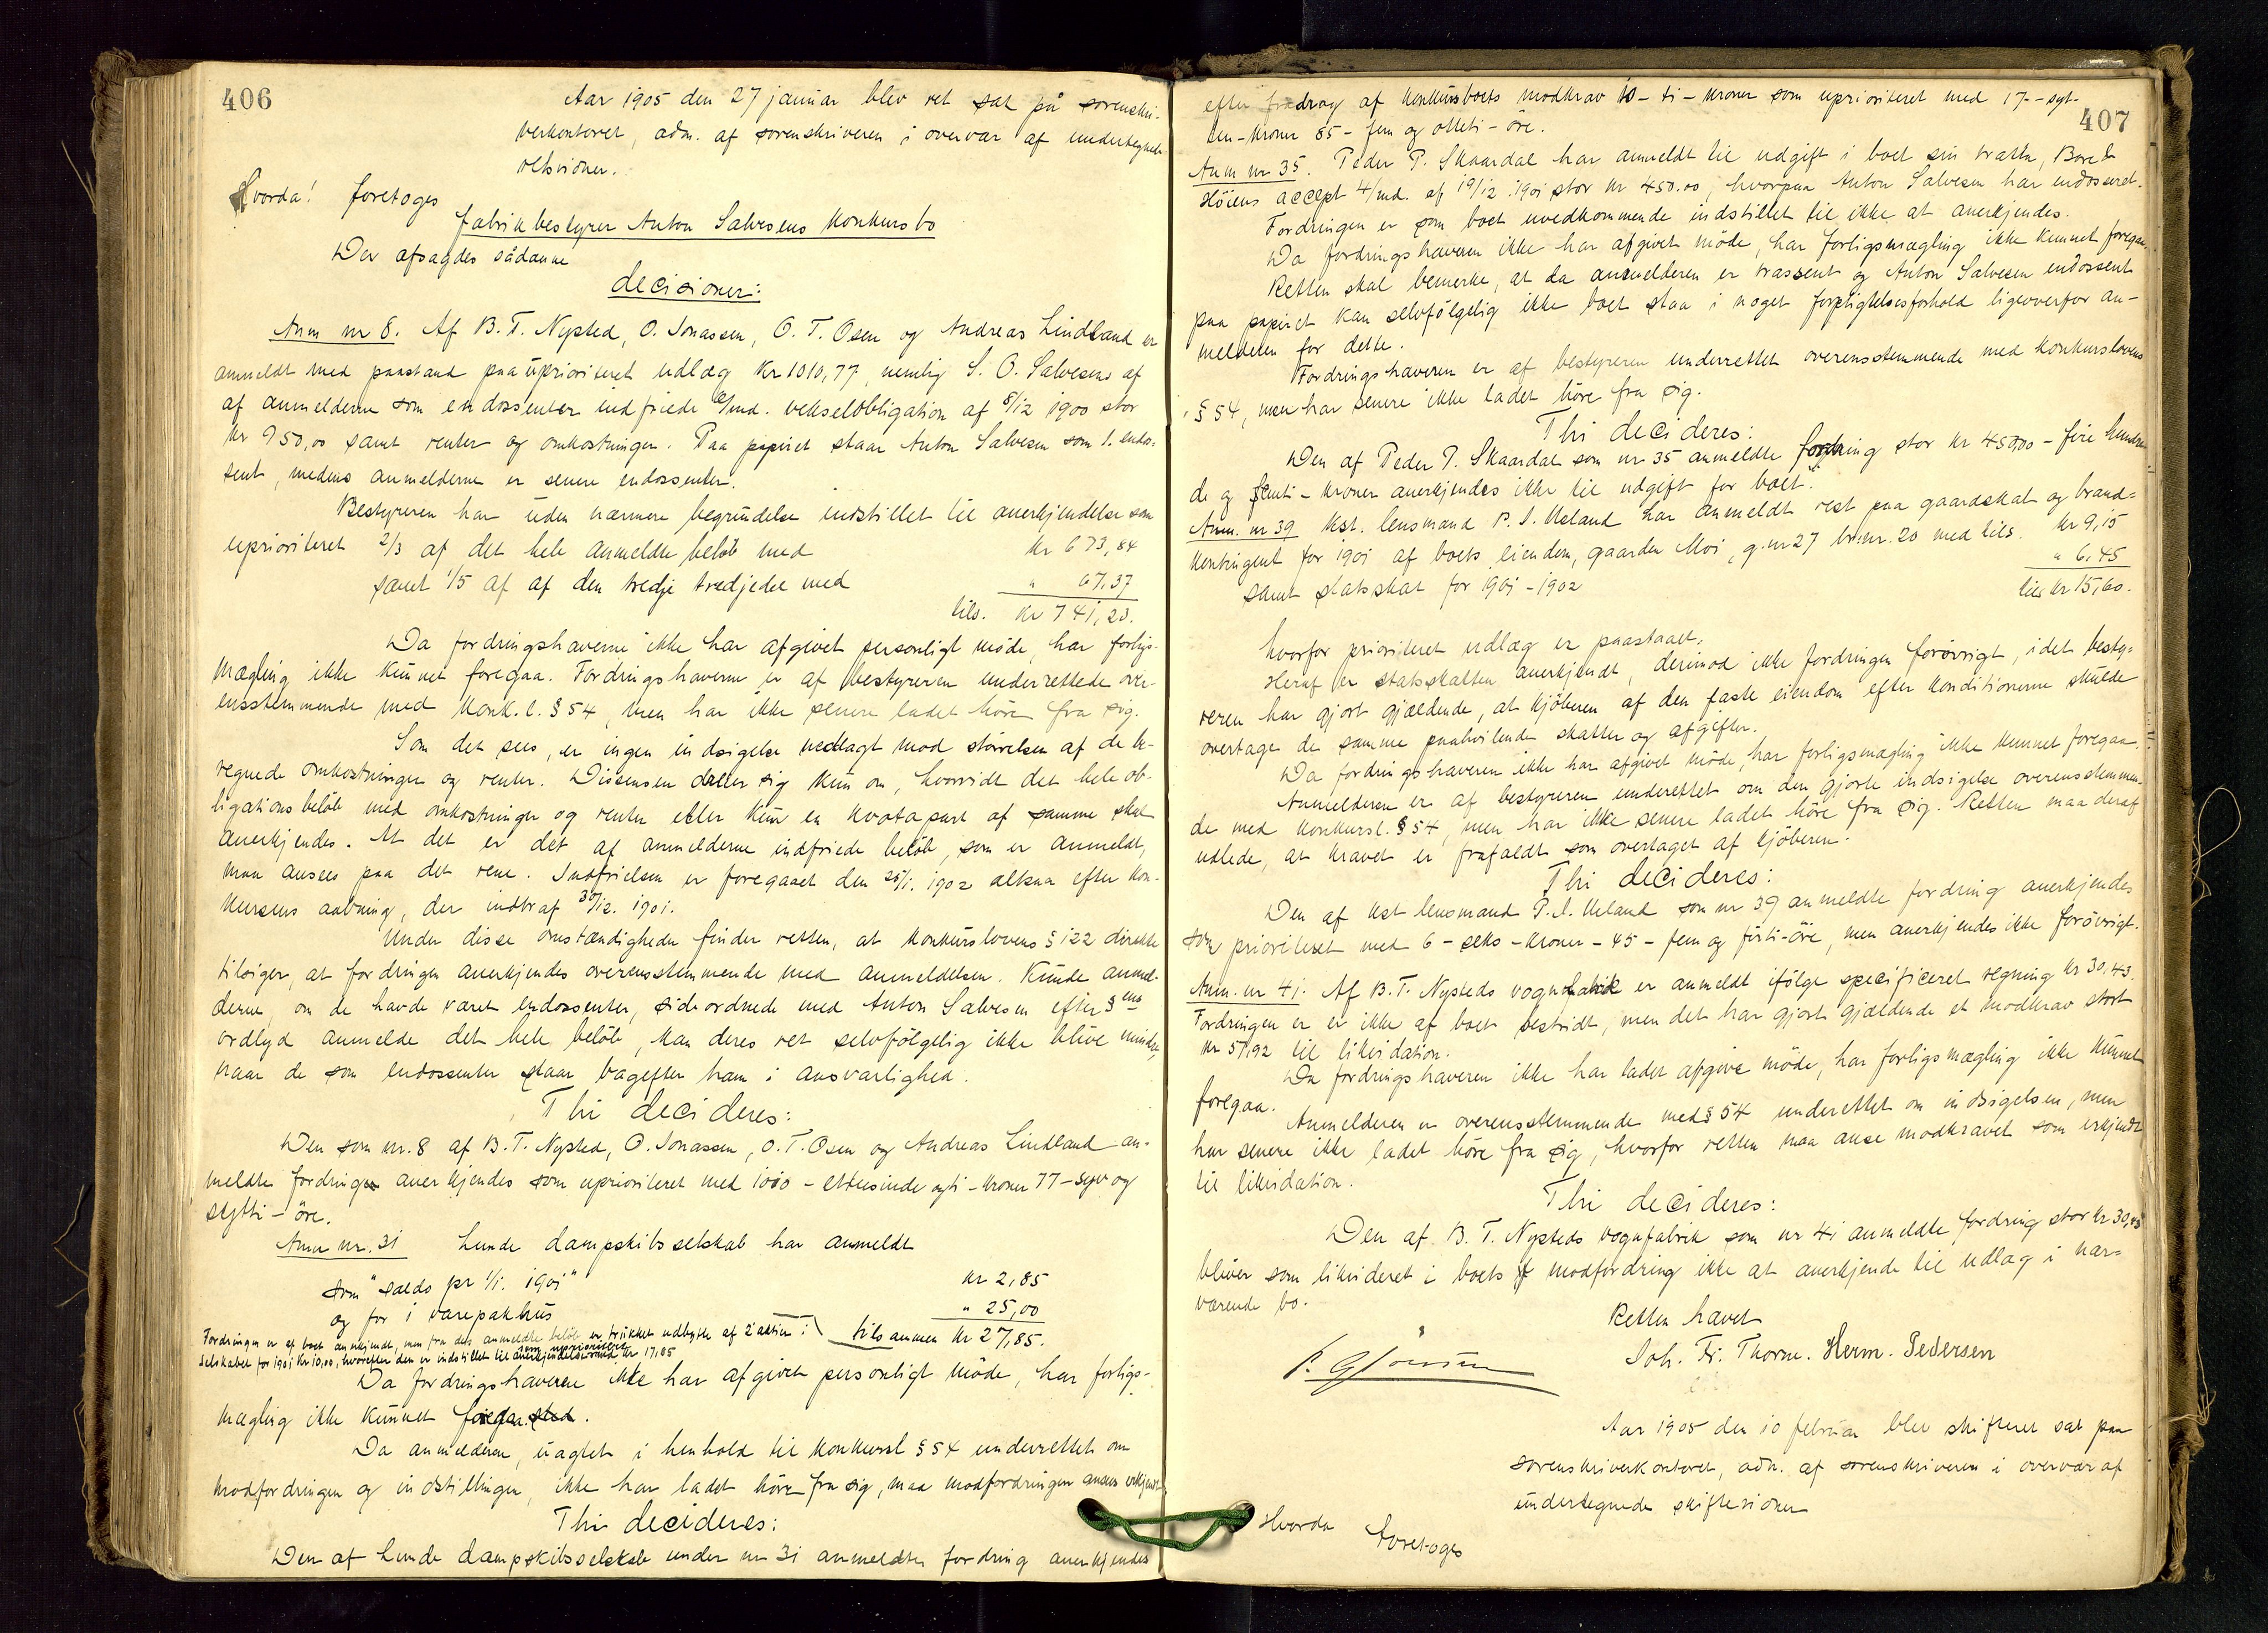 406
Aar 1905 den 27 januar blev ret sat på sorenskri-
verkontoret, adm. af sorenskriveren i overvær af undertegnede
retsvidner.
Hvorda! foretoges
fabrikbestyrer Anton Salvesens konkursbo
Der afsagdes sådanne
decisioner:
Anm nr 8. Af B. T. Nysted, O. Jonassen, O. T. Osen og Andreas Lindland er
anmeldt med paastand paa uprioriteret udlæg Kr 1010,77, nemlig S. O. Salvesens af
af anmelderne som endossenter indfriede 6/md. vekselobligation af 8/12 1900 stor
kr 950,00 samt renter og omkostninger. Paa papiret staar Anton Salvesen som 1. endos-
sent, medens anmelderne er senere endossenter.
Bestyreren har uden nærmere begrundelse indstillet til anerkjendelse som
uprioriteret 2/3 af det hele anmeldte beløb med kr 673,84
samt 1/5 af af den tredje tredjedel med " 67,37
tils. kr 741,23.
Da fordringshaverne ikke har afgivet personligt møde, har forligs-
mægling ikke kunnet foregaa. Fordringshaverne er af bestyreren underrettede over-
ensstemmende med Konk. l. § 54, men har ikke senere ladet høre fra sig.
Som det sees, er ingen indsigelse nedlagt mod størrelsen af de be-
regnede omkostninger og renter. Dissensen dreier sig kun om, hvorvidt det hele ob-
ligationsbeløb med omkostninger og renter eller kun en kvotapart af samme skal
anerkjendes. At det er det af anmelderne indfriede beløb, som er anmeldt,
maa ansees paa det rene. Indfrielsen er foregaaet den 25/1. 1902 altsaa efter kon-
kursens aabning, der indtraf 30/12. 1901.
Under disse omstændigheder finder retten, at konkurslovens § 122 direkte
tilsiger, at fordringen anerkjendes overensstemmende med anmeldelsen. Kunde anmel-
derne, om de havde været endossenter, sideordnede med Anton Salvesen efter §ens
ordlyd anmelde det hele beløb, kan deres ret selvfølgelig ikke blive mindre,
naar de som endossenter staar bagefter ham i ansvarlighed.
Thi decideres:
Den som nr. 8 af B. T. Nysted, O. Jonassen, O. T. Osen og Andreas Lindland an-
meldte fordring anerkjendes som uprioriteret med 1010 - ettusinde og ti - kroner 77 - syv og
sytti - øre.
Anm nr. 31 Lunde dampskibsselskab har anmeldt
som "saldo pr 1/1. 1901" kr 2,85
og for 1 varepakhus " 25,00
tilsammen kr 27,85.
Fordringen er af boet anerkjendt, men fra det anmeldte beløb er trukket udbytte af 2 aktier i
selskabet for 1901 kr 10,00, hvorefter den er indstillet til anerkjendelse som uprioriteret med kr 17,85
Da fordringshaverne ikke har afgivet personligt møde, har forligs-
mægling ikke kunnet foregaa.
Da anmelderen, uagtet i henhold til konkursl § 54 underrettet om
modfordringen og indstillingen, ikke har ladet høre fra sig, maa modfordringen ansees erkjendt
Thi decideres:
Den af Lunde dampskibsselskab under nr 31 anmeldte fordring anerkjendes
407
efter fradrag af konkursboets modkrav 10 - ti - kroner som uprioriteret med 17 - syt-
ten - kroner 85 - fem og otteti - øre.
Anm nr 35. Peder P. Skaardal har anmeldt til udgift i boet sin tratta, Bore &
Höiens accept 4/md. af 19/12 1901 stor kr 450.00, hvorpaa Anton Salvesen har endosseret.
Fordringen er som boet uvedkommende indstillet til ikke at anerkjendes.
Da fordringshaveren ikke har afgivet møde, har forligsmægling ikke kunnet foregaa.
Retten skal bemerke, at da anmelderen er trassent og Anton Salvesen endossent
paa papiret kan selvfølgelig ikke boet staa i noget forpligtelsesforhold ligeoverfor an-
melderen for dette.
Fordringshaveren er af bestyreren underrettet overensstemmende med konkurslovens
§ 54, men har senere ikke ladet høre fra sig.
Thi decideres:
Den af Peder P. Skaardal som nr 35 anmeldte fordring stor kr 450,00 - fire hundre-
de og femti - kroner anerkjendes ikke til udgift for boet.
Anm. nr 39 Kst. lensmand P. I. Ueland har anmeldt rest paa gaardskat og brand-
kontingent for 1901 af boets eiendom, gaarden Moi, g.nr 27 br.nr. 20 med tils. kr 9,15
samt statsskat for 1901 - 1902 " 6,45
tils kr 15,60.
hvorfor prioriteret udlæg er paastaaet.
Heraf er statsskatten anerkjendt, derimod ikke fordringen forøvrigt, idet besty-
reren har gjort gjældende, at kjøberen af den faste eiendom efter konditionerne skulde
overtage de samme paahvilende skatter og afgifter.
Da fordringshaveren ikke har afgivet møde, har forligsmægling ikke kunnet foregaa.
Anmelderen er af bestyreren underettet om den gjorte indsigelse overensstemmen-
de med konkursl. § 54, men har ikke senere ladet høre fra sig. Retten maa deraf
udlede, at kravet er frafaldt som overtaget af kjøberen.
Thi decideres:
Den af kst lensmand P. I. Ueland som nr 39 anmeldte fordring anerkjendes
som prioriteret med 6 - seks - kroner - 45 - fem og førti - øre, men anerkjendes ikke forøvrigt.
Anm. nr 41. Af B. T. Nysteds vognfabrik er anmeldt ifølge specificeret regning kr 30,43.
Fordringen er er ikke af boet bestridt, men det har gjort gjældende et modkrav stort
kr 57,92 til likvidation.
Da fordringshaveren ikke har ladet afgive møde, har forligsmægling ikke kunnet
foregaa.
Anmelderen er overensstemmende med § 54 underettet om indsigelsen, men
har senere ikke ladet høre fra sig, hvorfor retten maa anse modkravet som erkjendt
til likvidation.
Thi decideres:
Den af B. T. Nysteds vognfabrik som nr 41 anmeldte fordring stor kr 30,43
bliver som likvideret i boets modfordring ikke at anerkjende til udlæg i nær-
værende bo.
Retten hævet
Joh. Fr. Thorne. Herm. Pedersen
Aar 1905 den 10 februar blev skifteret sat paa
sorenskriverkontoret, adm. af sorenskriveren i overvær af
undertegnede skiftevidner
Hvorda
foretoges